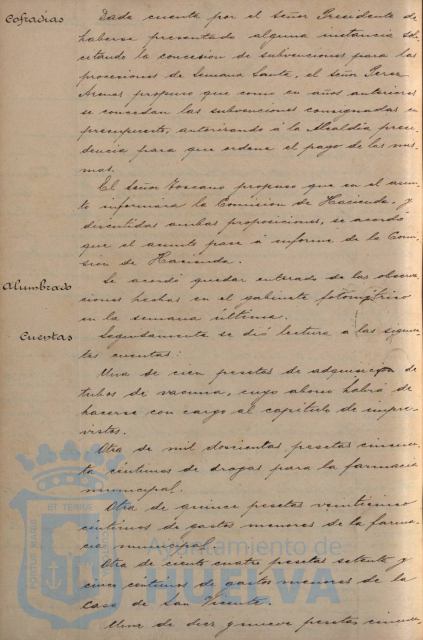 Cofradías
Dada cuenta por el Señor Presidente de
haberse presentado alguna instancia soli-
citando la concesion de subvenciones para las
procesiones de Semana Santa, el señor Perez
Arenas propuso que como en años anteriores
se concedan las subvenciones consignadas en
presupuesto, autorizando á la Alcaldia presi-
dencia para que ordene el pago de las mis-
mas.
El Señor Toscano propuso que en el asun-
to informára la Comision de Hacienda y
discutidas ambas proposiciones, se acordó
que el asunto pase á informe de la Comi-
sion de Hacienda.
Alumbrado
Se acordó quedar enterado de las observa-
ciones hechas en el gabinete fotométrico
en la semana última.
Cuentas
Seguidamente se dió lectura a las siguien-
tes cuentas:
Una de cien pesetas de adquisicion de
tubos de vacuna, cuyo abono habrá de
hacerse con cargo al capítulo de impre-
vistos.
Otra de mil doscientas pesetas cincuen-
ta céntimos de drogas para la farmacia
municipal.
Otra de quince pesetas veinticinco
céntimos de gastos menores de la farma-
cia municipal.
Otra de ciento cuatro pesetas setenta y
cinco céntimos de gastos menores de la
casa de San Vicente.
Una de diez y nueve pesetas cincuen-
PORTUS MARIS ET TERRAE
Ayuntamiento de
HUELVA